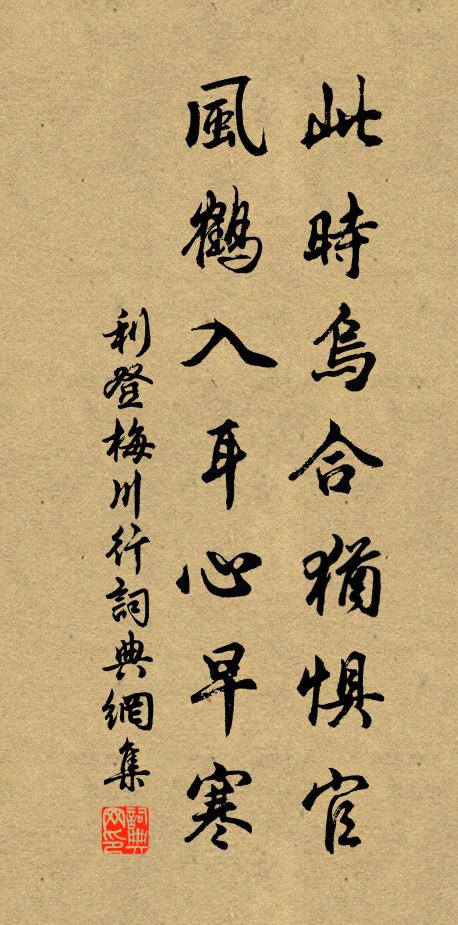 此時烏合猶懼官
風鶴入耳心早寒
利登梅川行詞典網集
詞典網印